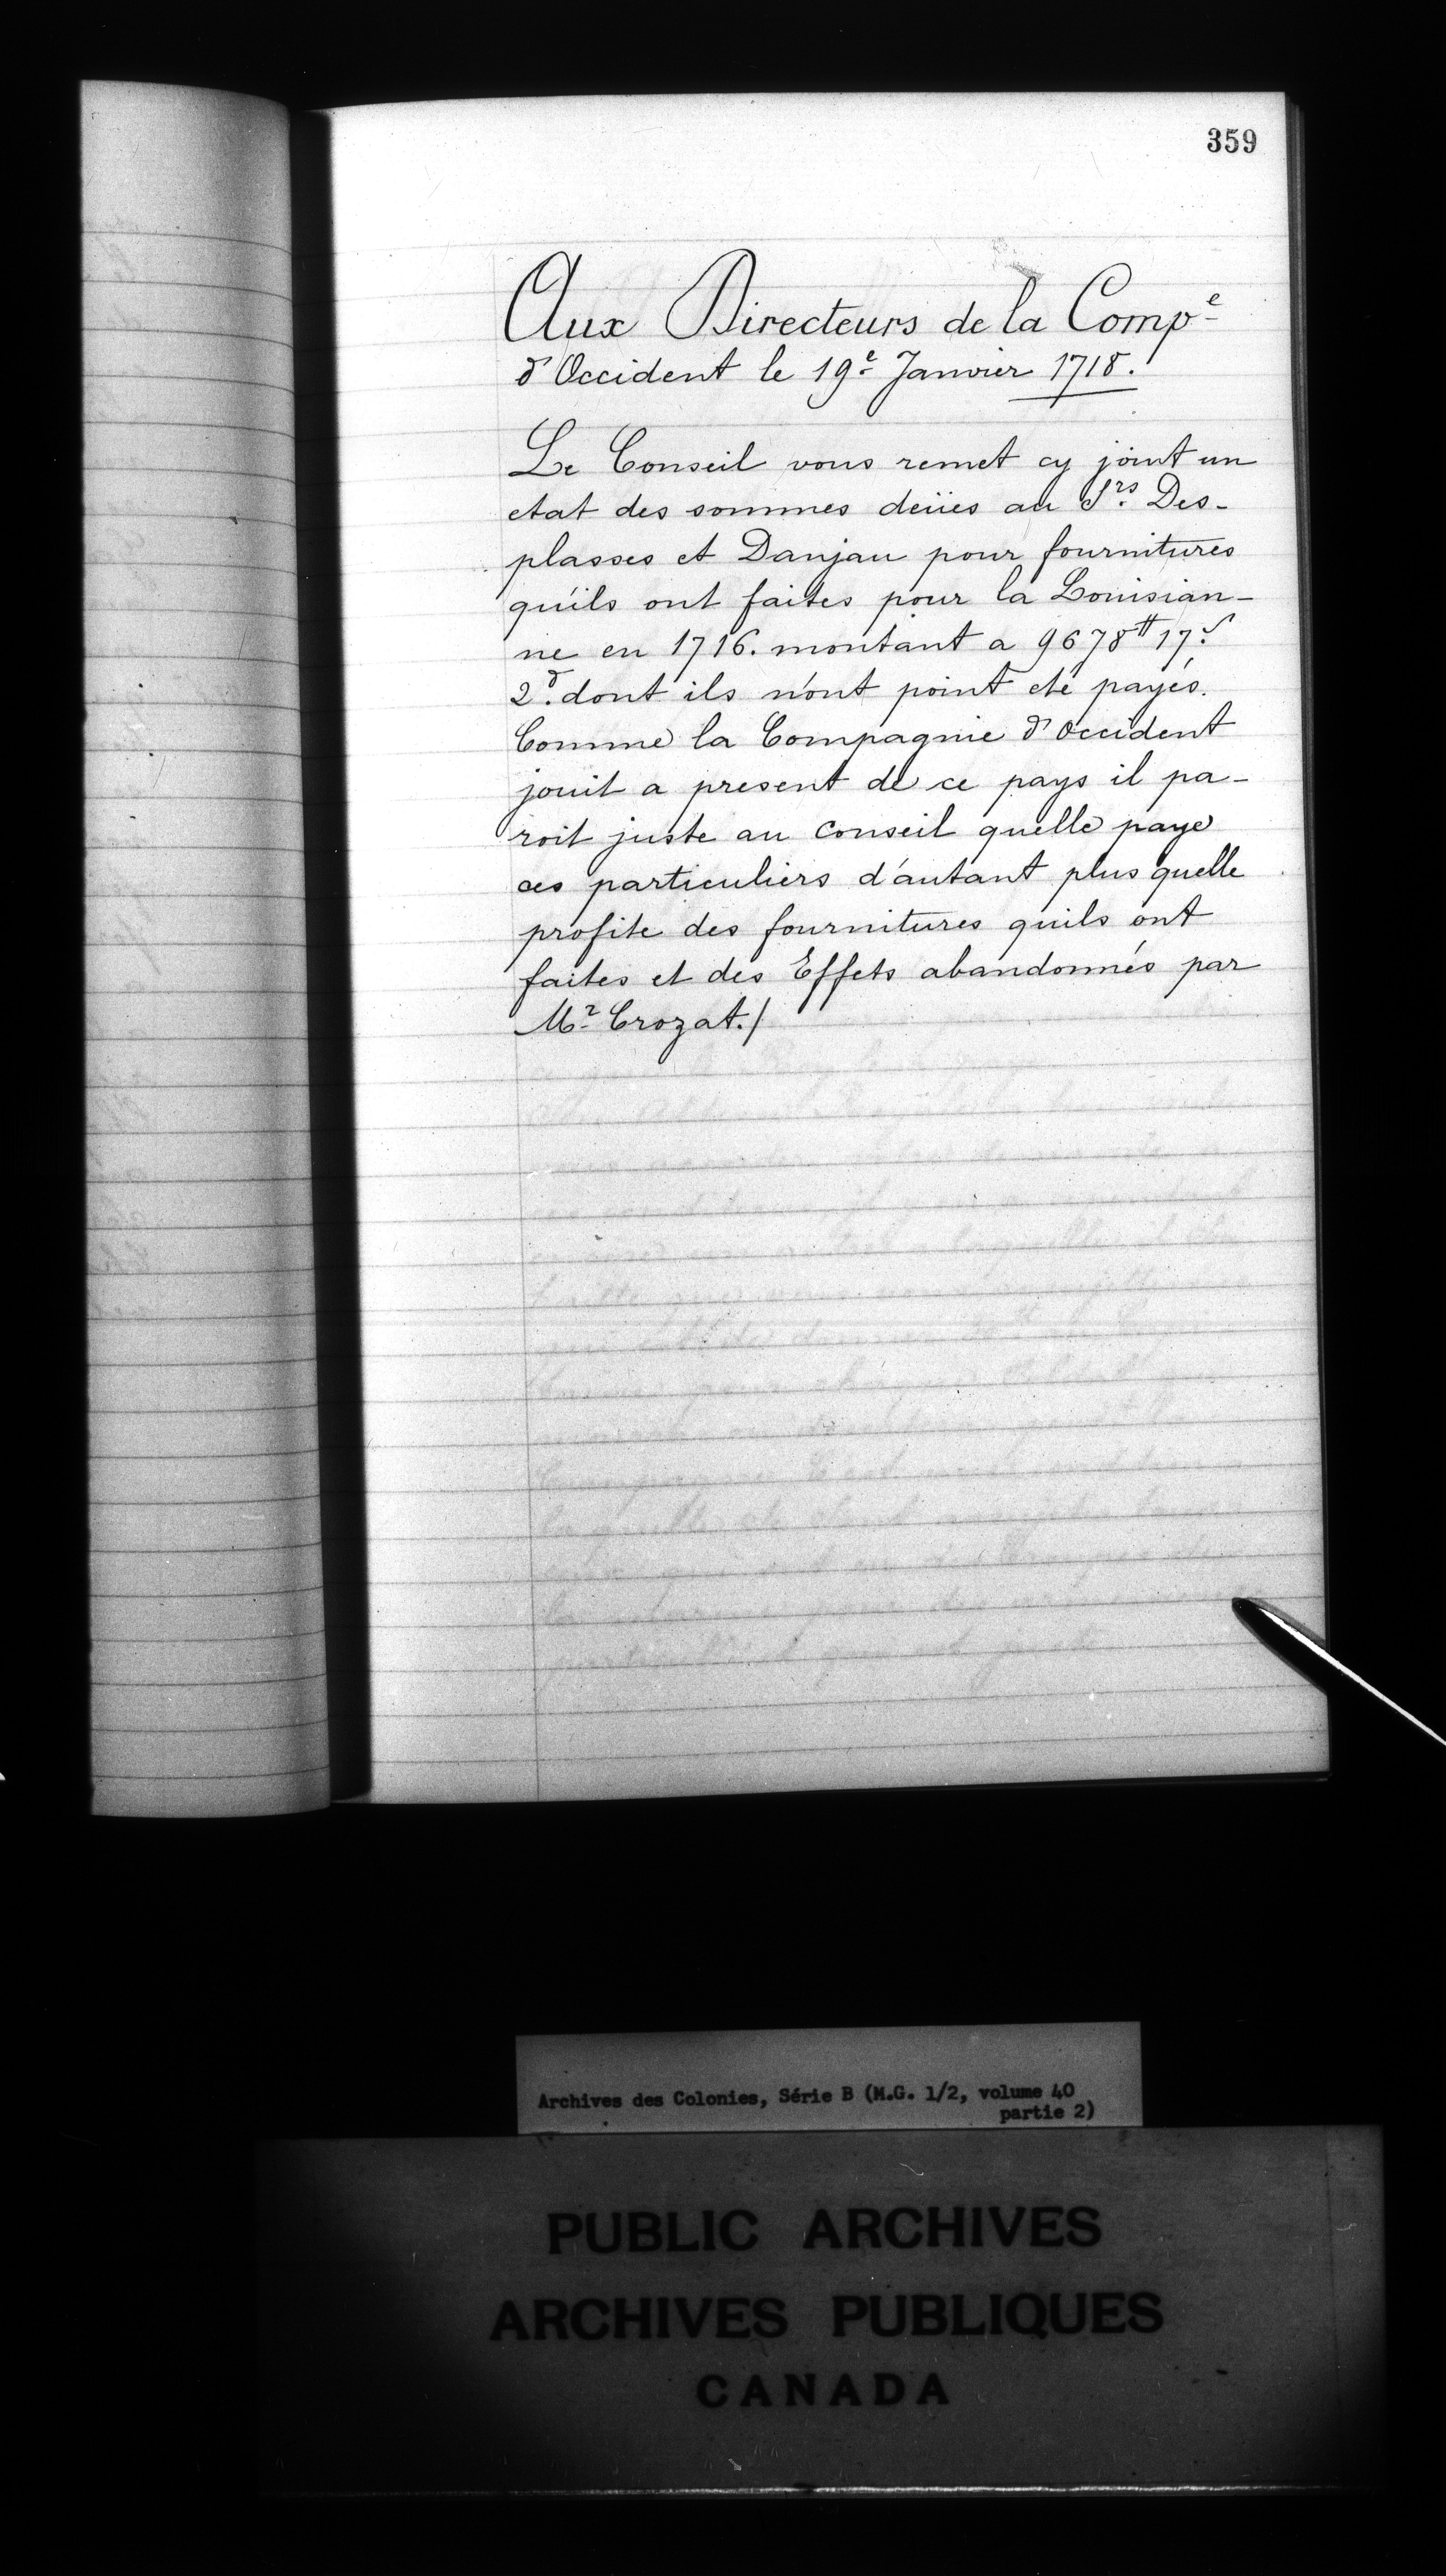 359
Aux Directeurs de la Compe
d'Occident le 19e Janvier 1718.
Le Conseil vous remet cy joint un
etat des sommes deües au Srs. Des-
plasses et Danjau pour fournitures
qu'ils ont faites pour la Louisian-
ne en 1716. montant a 9678tt 17s.
2d. dont ils n'ont point eté payés.
Comme la Compagnie d'Occident
jouit a present de ce pays il pa-
roit juste au Conseil quelle paye
ces particuliers d'autant plus quelle
profite des fournitures quils ont
faites et des Effets abandonnés par
Mr Crozat./
Archives des Colonies, Série B (M.G. 1/2, volume 40
partie 2)
PUBLIC ARCHIVES
ARCHIVES PUBLIQUES
CANADA